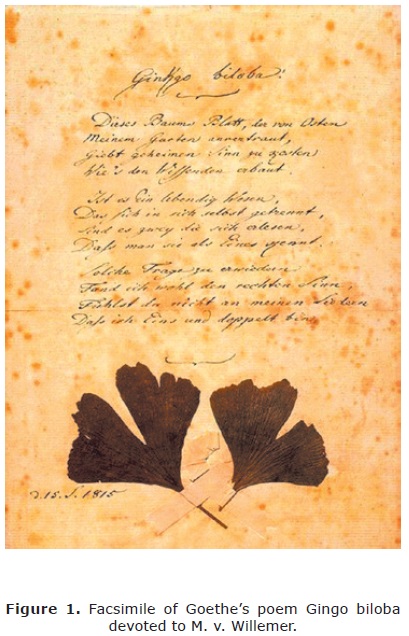 Ginkgo biloba.
Dieses Baums Blatt, der von Osten
Meinem Garten anvertraut,
Giebt geheimen Sinn zu kosten
Wie's den Wissenden erbaut.
Ist es Ein lebendig Wesen,
Das sich in sich selbst getrennt,
Sind es zwey die sich erlesen,
Dass man sie als Eines kennt.
Solche Frage zu erwiedern
Fand ich wohl den rechten Sinn,
Fühlst du nicht an meinen Liedern
Dass ich Eins und doppelt bin.
d. 15. S. 1815
Figure 1. Facsimile of Goethe's poem Gingo biloba
devoted to M. v. Willemer.